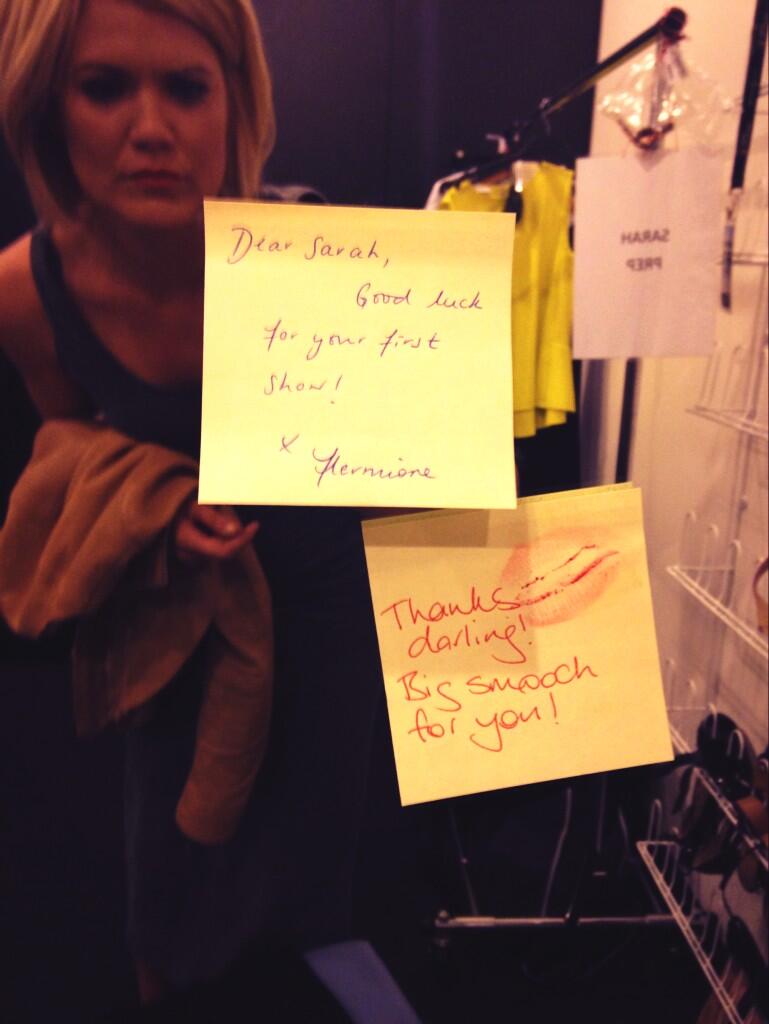 Dear Sarah,
Good luck
for your first
show!
x Hermione
Thanks
darling!
Big smooch
for you!
SARAH
PREP